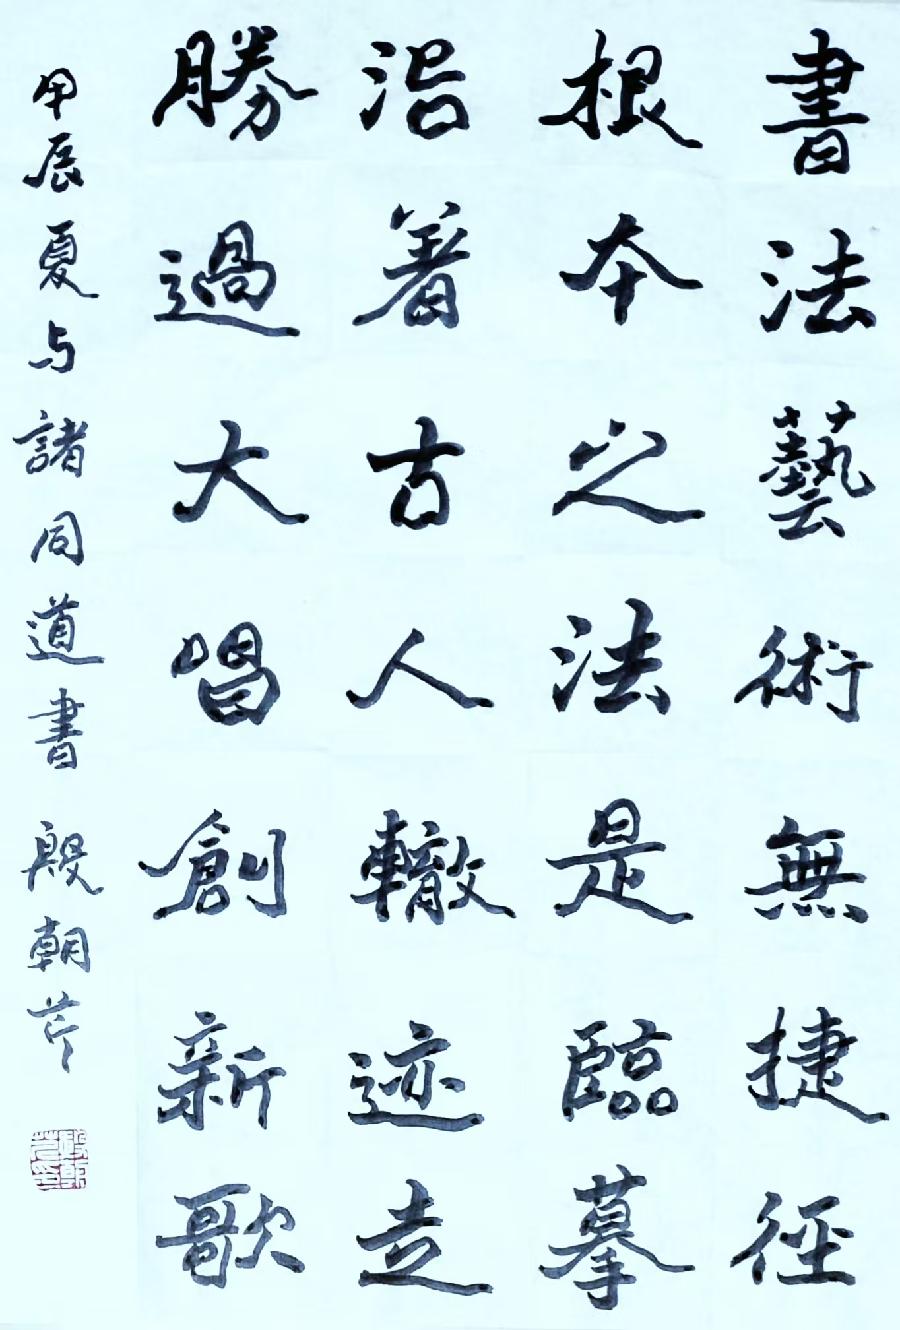 書法藝術無捷徑
根本之法是臨摹
沿着古人轍迹走
勝過大唱創新歌
甲辰夏与諸同道書 殷朝芹